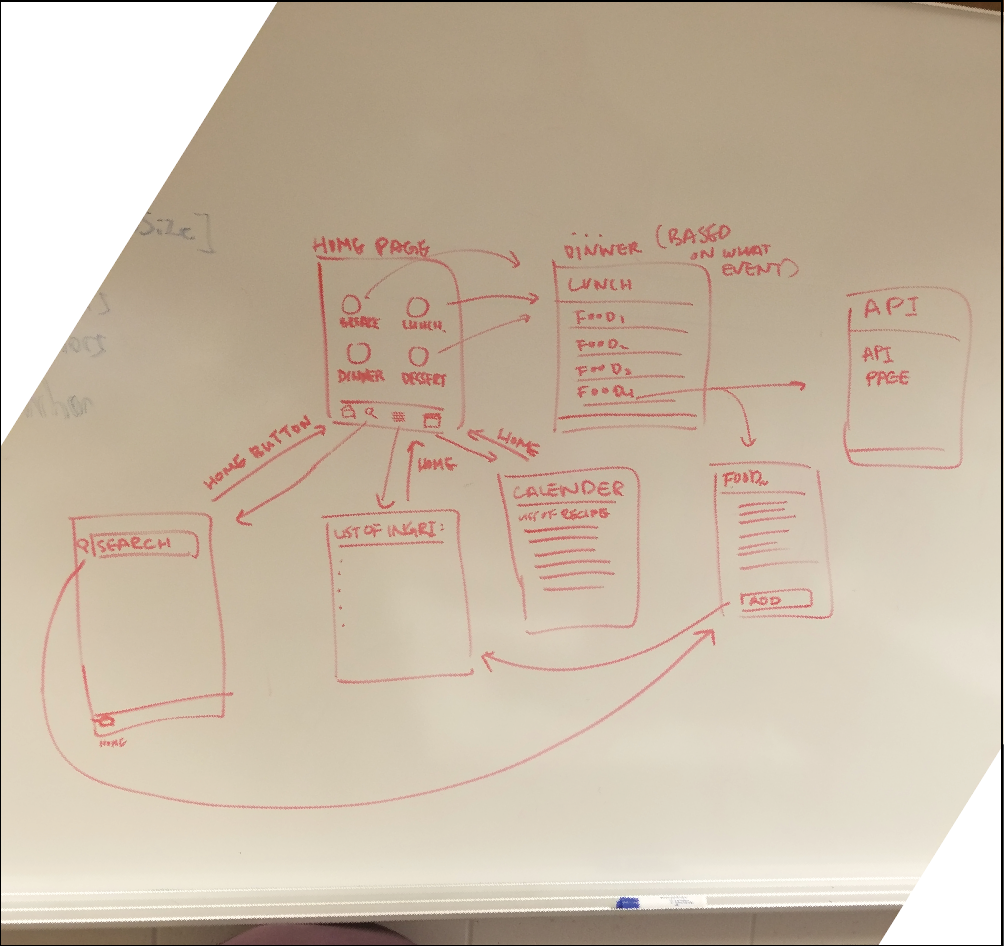 HOME PAGE
BREAKF
LUNCH.
DINNER
DESSERT
...
DINNER (BASED
ON WHAT
EVENT)
LUNCH
FOOD1
FOOD2
FOOD3
FOOD4
API
API
PAGE
HOME BUTTON
HOME
HOME
SEARCH
HOME
LIST OF INGRI:
CALENDER
LIST OF RECIPE
FOOD
ADD